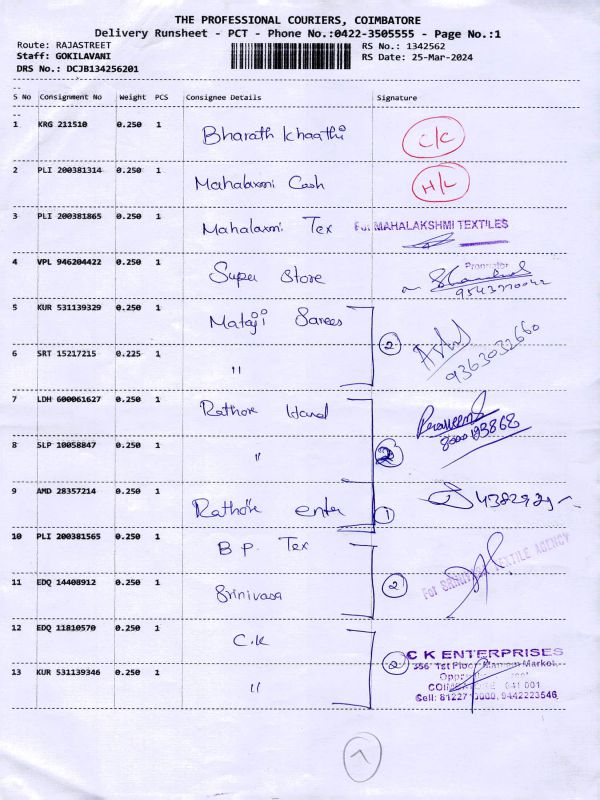 THE PROFESSIONAL COURIERS, COIMBATORE
Delivery Runsheet - PCT - Phone No.:0422-3505555 - Page No.:1
Route: RAJASTREET RS No.: 1342562
Staff: GOKILAVANI RS Date: 25-Mar-2024
DRS No.: DCJB134256201
S No Consignment No Weight PCS Consignee Details Signature
1 KRG 211510 0.250 1 Bharath Khaathi C/C
2 PLI 200381314 0.250 1 Mahalaxmi Cash H/L
3 PLI 200381865 0.250 1 Mahalaxmi Tex For MAHALAKSHMI TEXTILES
Proprietor
4 VPL 946204422 0.250 1 Super Store
5 KUR 531139329 0.250 1 Mataji Sarees
2 9363032660
6 SRT 15217215 0.225 1 "
7 LDH 600061627 0.250 1 Rathore Hand
8 SLP 10058847 0.250 1 " 2
9 AMD 28357214 0.250 1 Rathore enter 1
10 PLI 200381565 0.250 1 B.P. Tex
For SRINIVASA TEXTILE AGENCY
11 EDQ 14408912 0.250 1 Srinivasa 2
12 EDQ 11810570 0.250 1 C.K
2 C K ENTERPRISES
356 1st Floor Market,
13 KUR 531139346 0.250 1 "
641 001
9442223546,
7